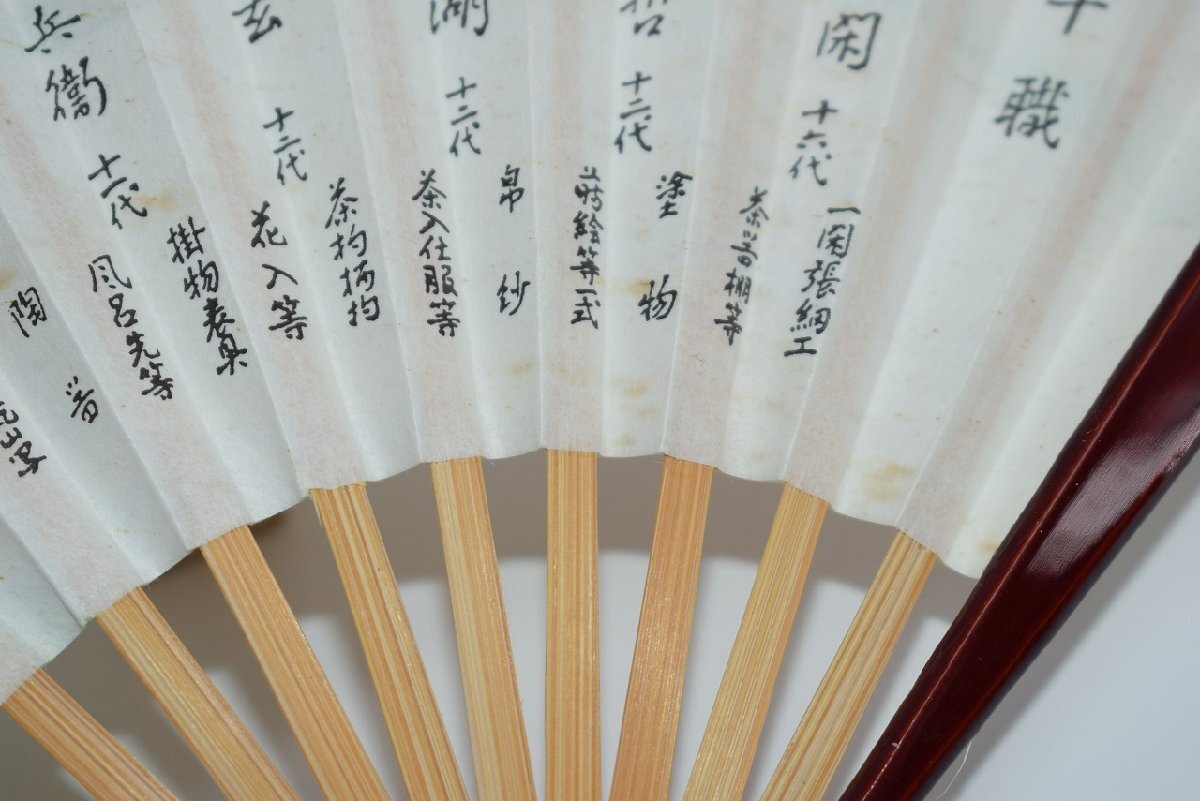 職
閑 十六代
一閑張細工
茶箱棚等
哲 十二代
塗物
蒔絵等一式
湖 十二代
帛紗
茶入仕服等
玄 十二代
茶杓柄杓
花入等
兵衛 十一代
掛物表具
風呂先等
陶